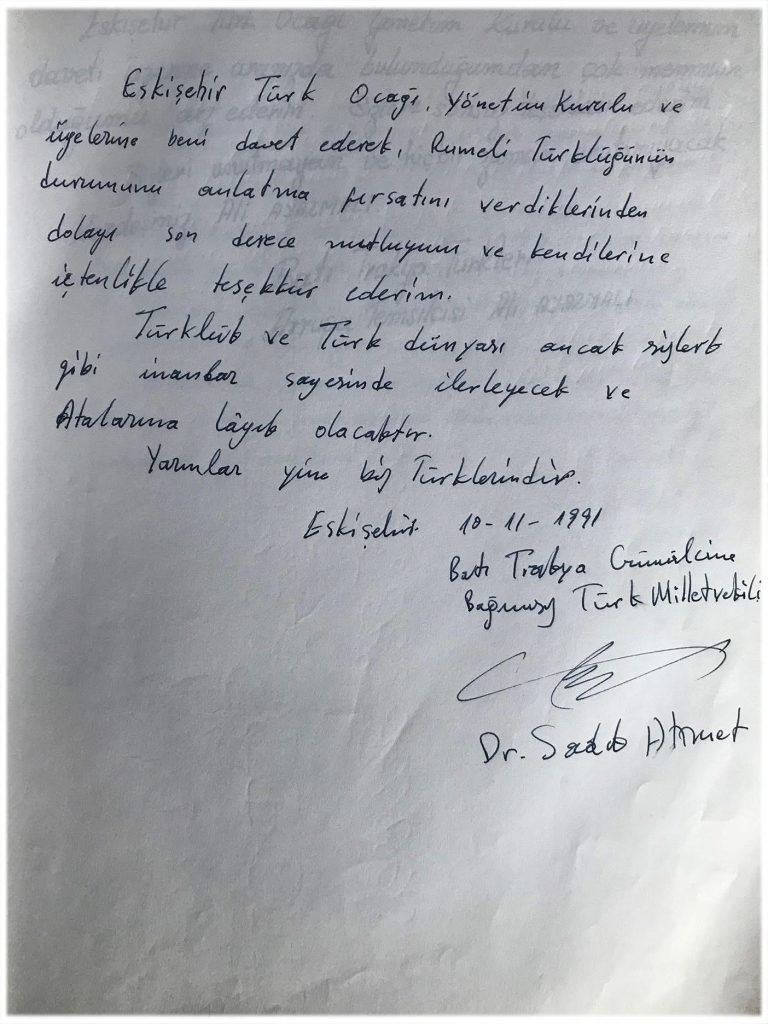 Eskişehir Türk Ocağı, Yönetim Kurulu ve
üyelerine beni davet ederek, Rumeli Türklüğünün
durumunu anlatma fırsatını verdiklerinden
dolayı son derece mutluyum ve kendilerine
içtenlikle teşekkür ederim.
Türklük ve Türk dünyası ancak sizler
gibi insanlar sayesinde ilerleyecek ve
Atalarına lâyık olacaktır.
Yarınlar yine biz Türklerindir.
Eskişehir. 10-11-1991
Batı Trakya Gümülcine
Bağımsız Türk Milletvekili
Dr. Sadık Ahmet